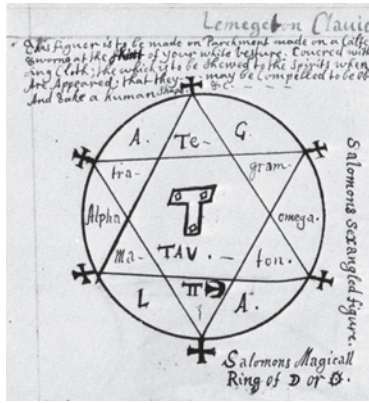 Lemegeton Clavic
This figuer is to be made on Parchment made on a Calfs
& worne at the skirt of your white vesture. Couered with
ing Cloth; the which is to be shewed to the spirits when
Are Appeared; that they may be compelled to be ob
And take a human shape &c
A. Te- G
tra- gram-
T
Alpha omega.
ma- TAU. ton.
L A.
Salomons sexangled figure.
Salomons Magicall
Ring of or